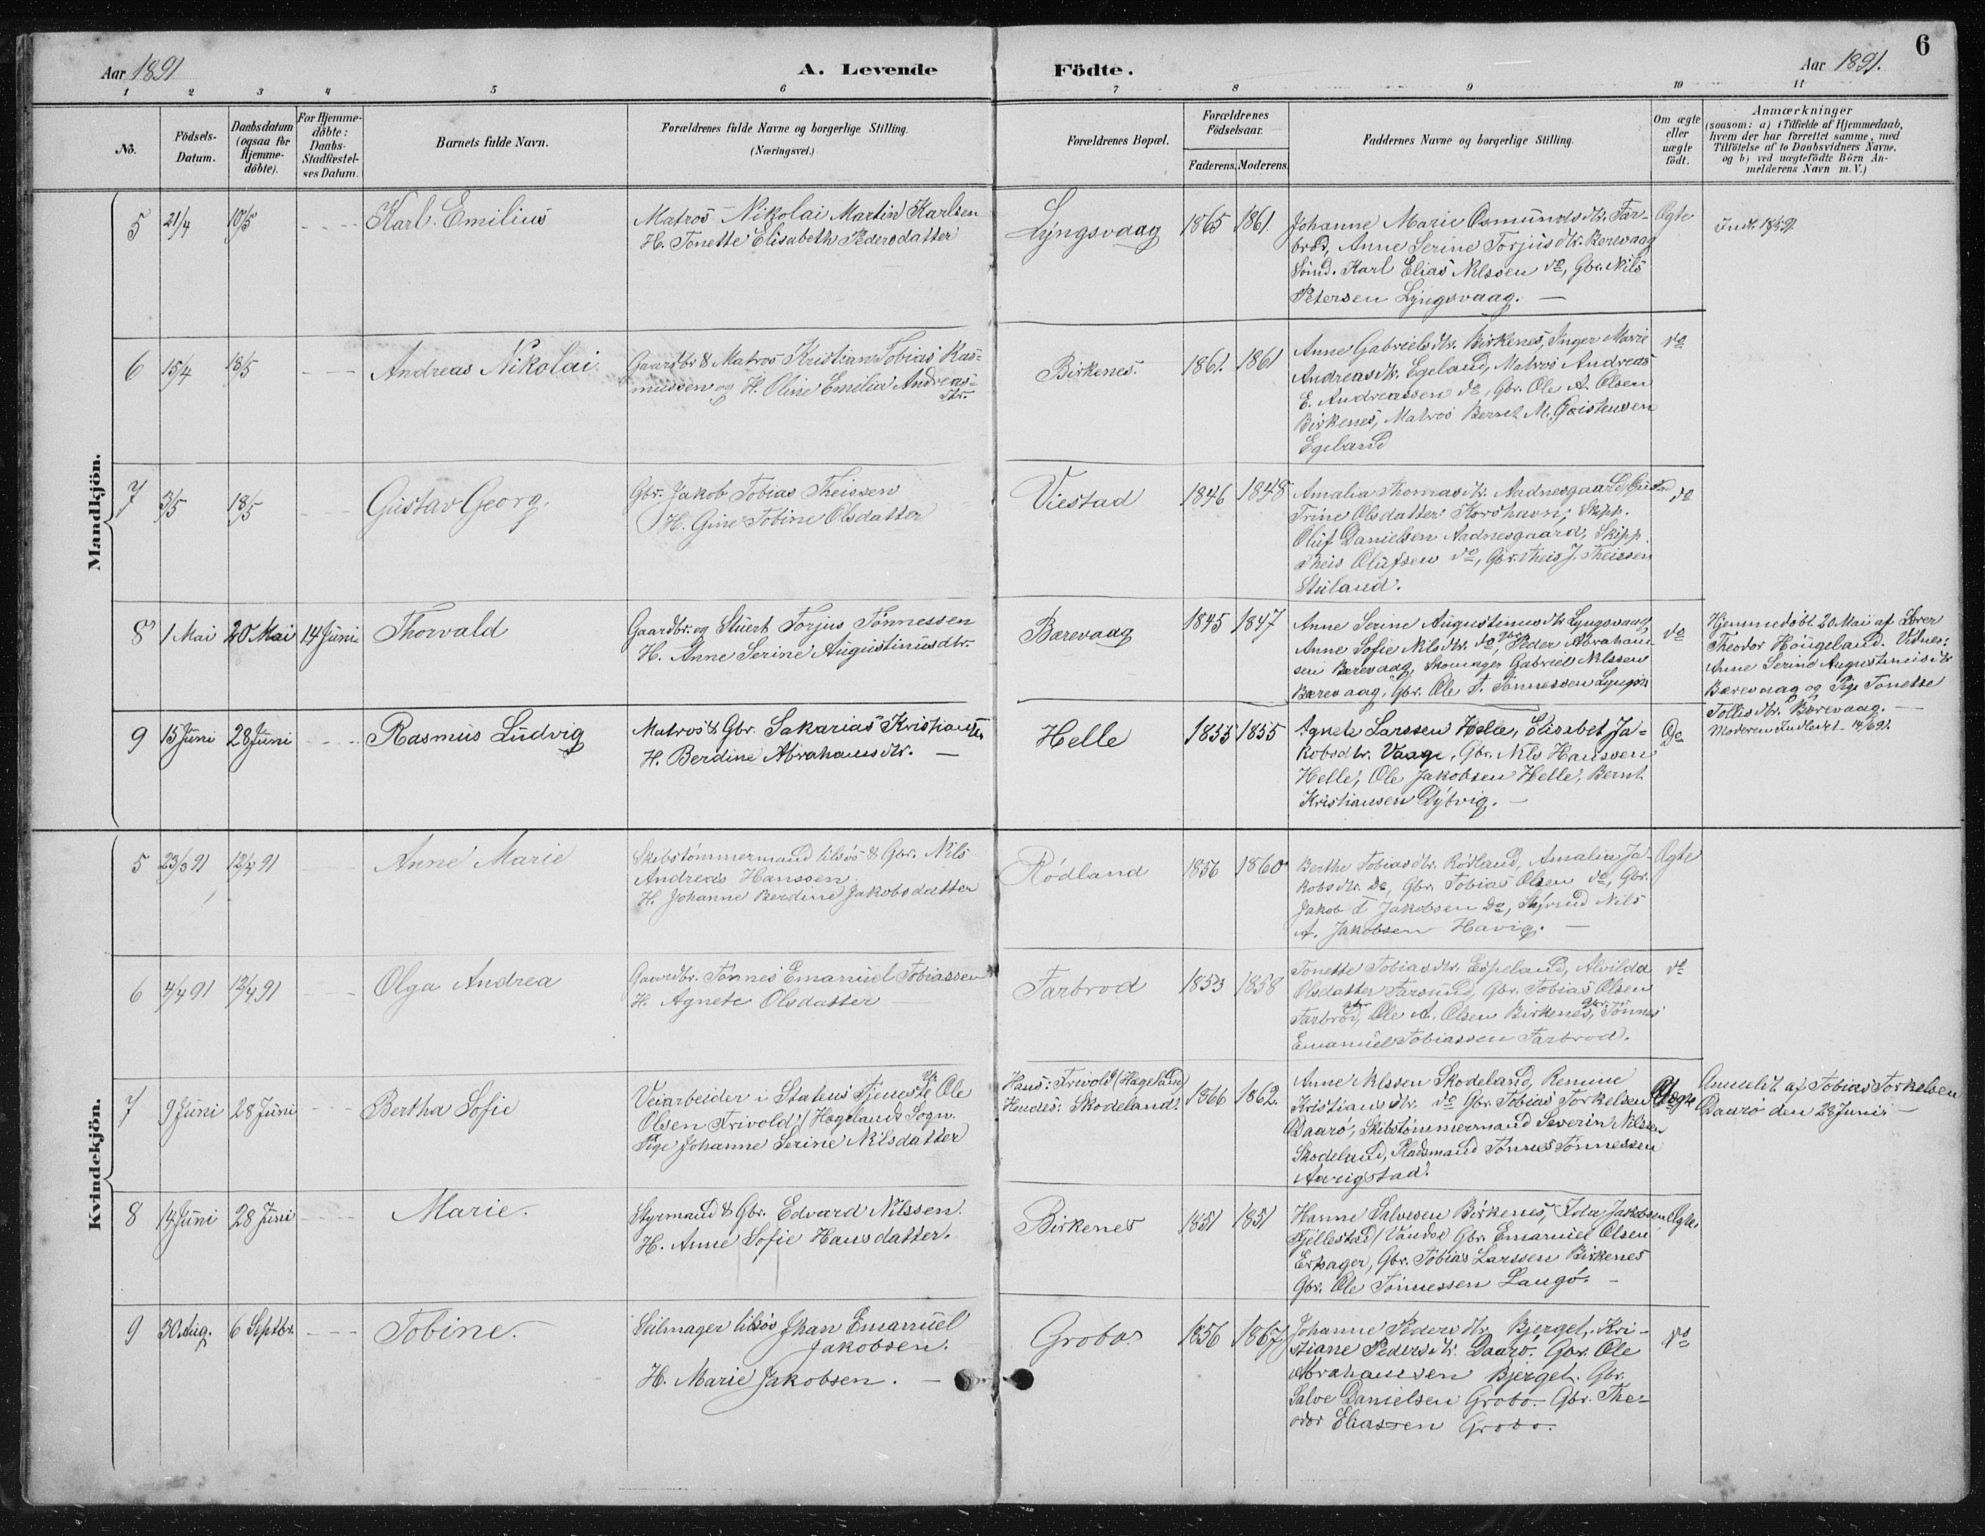 Aar 1891
A. Levende
Födte.
Aar 1891.
6
1 2 3 4 5 6 7 8 9 10 11
No.
Födsels-
Datum.
Daabsdatum
(ogsaa for
Hjemme-
döbte).
For Hjemme-
döbte:
Daabs-
Stadfæstel-
ses Datum.
Barnets fulde Navn.
Forældrenes fulde Navne og borgerlige Stilling.
(Næringsvei.)
Forældrenes Bopæl.
Forældrenes
Födselsaar.
Faderens. Moderens.
Faddernes Navne og borgerlige Stilling.
Om ægte
eller
uægte
födt.
Anmærkninger
(saasom: a) i Tilfælde af Hjemmedaab,
hvem der har forrettet samme, med
Tilföielse af to Daabsvidners Navne.
og b) ved uægtefödte Börn An-
melderens Navn m. V.)
Mandkjön.
5 21/4 10/5
Karl Emilius
Matros Nikolai Martin Karlsen
H. Tonette Elisabeth Pedersdatter
Lyngsvaag
1865 1861.
Johanne Marie Osmundsdtr. Far-
brod, Anne Serine Torjusdtr. Barevaag
Karl Elias Nilssen do, Gbr. Nils
Petersen Lyngsvaag. —
Ægte
6 15/4 18/5
Andreas Nikolai.
Gaardbr & Matros Kristian Tobias Ras-
mussen og H. Oline Emilia Andreas-
dtr.
Birkenes.
1861. 1861
Anne Gabrielsdtr. Birkenes, Inger Marie
Andreasdtr. Egeland, Matros Andreas
E. Andreassen do, Gbr. Ole A. Olsen
Birkenes, Matros Bernt M.
Egeland
do
7 3/5 18/5
Gustav Georg.
Gbr. Jakob Tobias Theissen
H. Gine Tobine Olsdatter
Viestad
1846 1848
Amalia Thomasdtr. Aadnesgaard,
Trine Olsdatter Korshavn, Skipp.
Oluf Danielsen Aadnesgaard, Skipp.
Theis Olufsen do, Gbr. Theis J. Theissen
Stuland.
do
8 1 Mai 20 Mai 14 Juni
Thorvald
Gaardbr. og Stuert Torjus Tønnessen
H. Anne Serine Augustinusdtr.
Barevaag
1845 1847
Anne Serine Augustinusdtr Lyngsvaag,
Anne Sofie Nilsdtr. do, Gbr. Peder Abraham-
sen Barevaag, Skomager Gabriel Nilssen
Barevaag, Gbr. Ole T. Tønnessen
do
Hjemmedøbt 20 Mai af Lærer
Theodor Høugeland. Vidner:
Anne Serine Augustinusdtr
Barevaag og Pige Tonette
Tollisdtr. Barevaag. —
Moderen Indledet 14/6 91.
9 15 Juni 28 Juni
Rasmus Ludvig
Matros & Gbr. Sakarias Kristiansen
H. Berdine Abrahamsdtr. —
Helle
1855 1855
Agnete Larssen Helle, Elisabet Ja-
kobsdtr. Vaage, Gbr. Nils Hanssen
Helle, Ole Jakobsen Helle, Bernt
Kristiansen Dybvig. —
Do
Kvindekjön.
5 23/3 91 12/4 91
Anne Marie
Skibstømmermand tilsøs & Gbr. Nils
Andreas Hanssen
H. Johanne Berdine Jakobsdatter
Rødland
1856 1860
Berthe Tobiasdtr. Rødland, Amalia Ja-
kobsdtr. Do, Gbr. Tobias Olsen do, Gbr.
Jakob T Jakobsen Do, Nils
A. Jakobsen Havig. —
Ægte
6 4/4 91 12/4 91
Olga Andrea
Gaardbr. Tønnes Emanuel Tobiassen
H. Agnete Olsdatter —
Farbrod
1853 1858
Tonette Tobiasdtr. Espeland, Alvilda
Olsdatter Farsund, Gbr. Tobias Olsen
Farbrod, Gbr. Ole A. Olsen Birkenes, Gbr. Tønnes
Emanuel Tobiassen Farbrod.
do
7 9 Juni 28 Juni
Bertha Sofie
Veiarbeider i Statens Tjeneste Ole
Olsen Frivold / Hægelands Sogn.
Pige Johanne Serine Nilsdatter
Hans: Frivold (Hægeland)
Hendes: Skodeland.
1866 1862
Anne Nilssen Skodeland, Remine
Kristiansdtr. do Gbr. Tobias Torkelsen
Daarø, Skibstømmermand Severin Nilssen
Skodeland, Pladsmand Tønnes Tønnessen
Aavigstad.
Uægte
Anmeldt af Tobias Torkelsen
Daarø den 28 Juni —
8 14 Juni 28 Juni
Marie.
Styrmand & Gbr. Edvard Nilssen.
H. Anne Sofie Hansdatter.
Birkenes
1851 1851
Hanne Salvesen Birkenes, Jakobsen
Fjellestad / Vandse Gbr. Emanuel Olsen
Erkager, Gbr. Tobias Larssen Birkenes
Gbr. Ole Tønnessen Langø. —
Ægte
9 30 Aug. 6 Septbr.
Tobine.
Seilmager tilsøs Johan Emanuel
Jakobsen.
H. Marie Jakobsen. —
Grobo.
1856 1867
Johanne Pedersdtr. Bjerget, Kri-
stiane Pedersdtr. Daarø. Gbr. Ole
Abrahamsen Bjerget. Gbr.
Salve Danielsen Grobo. Gbr. The-
odor Eliassen Grobo.
do